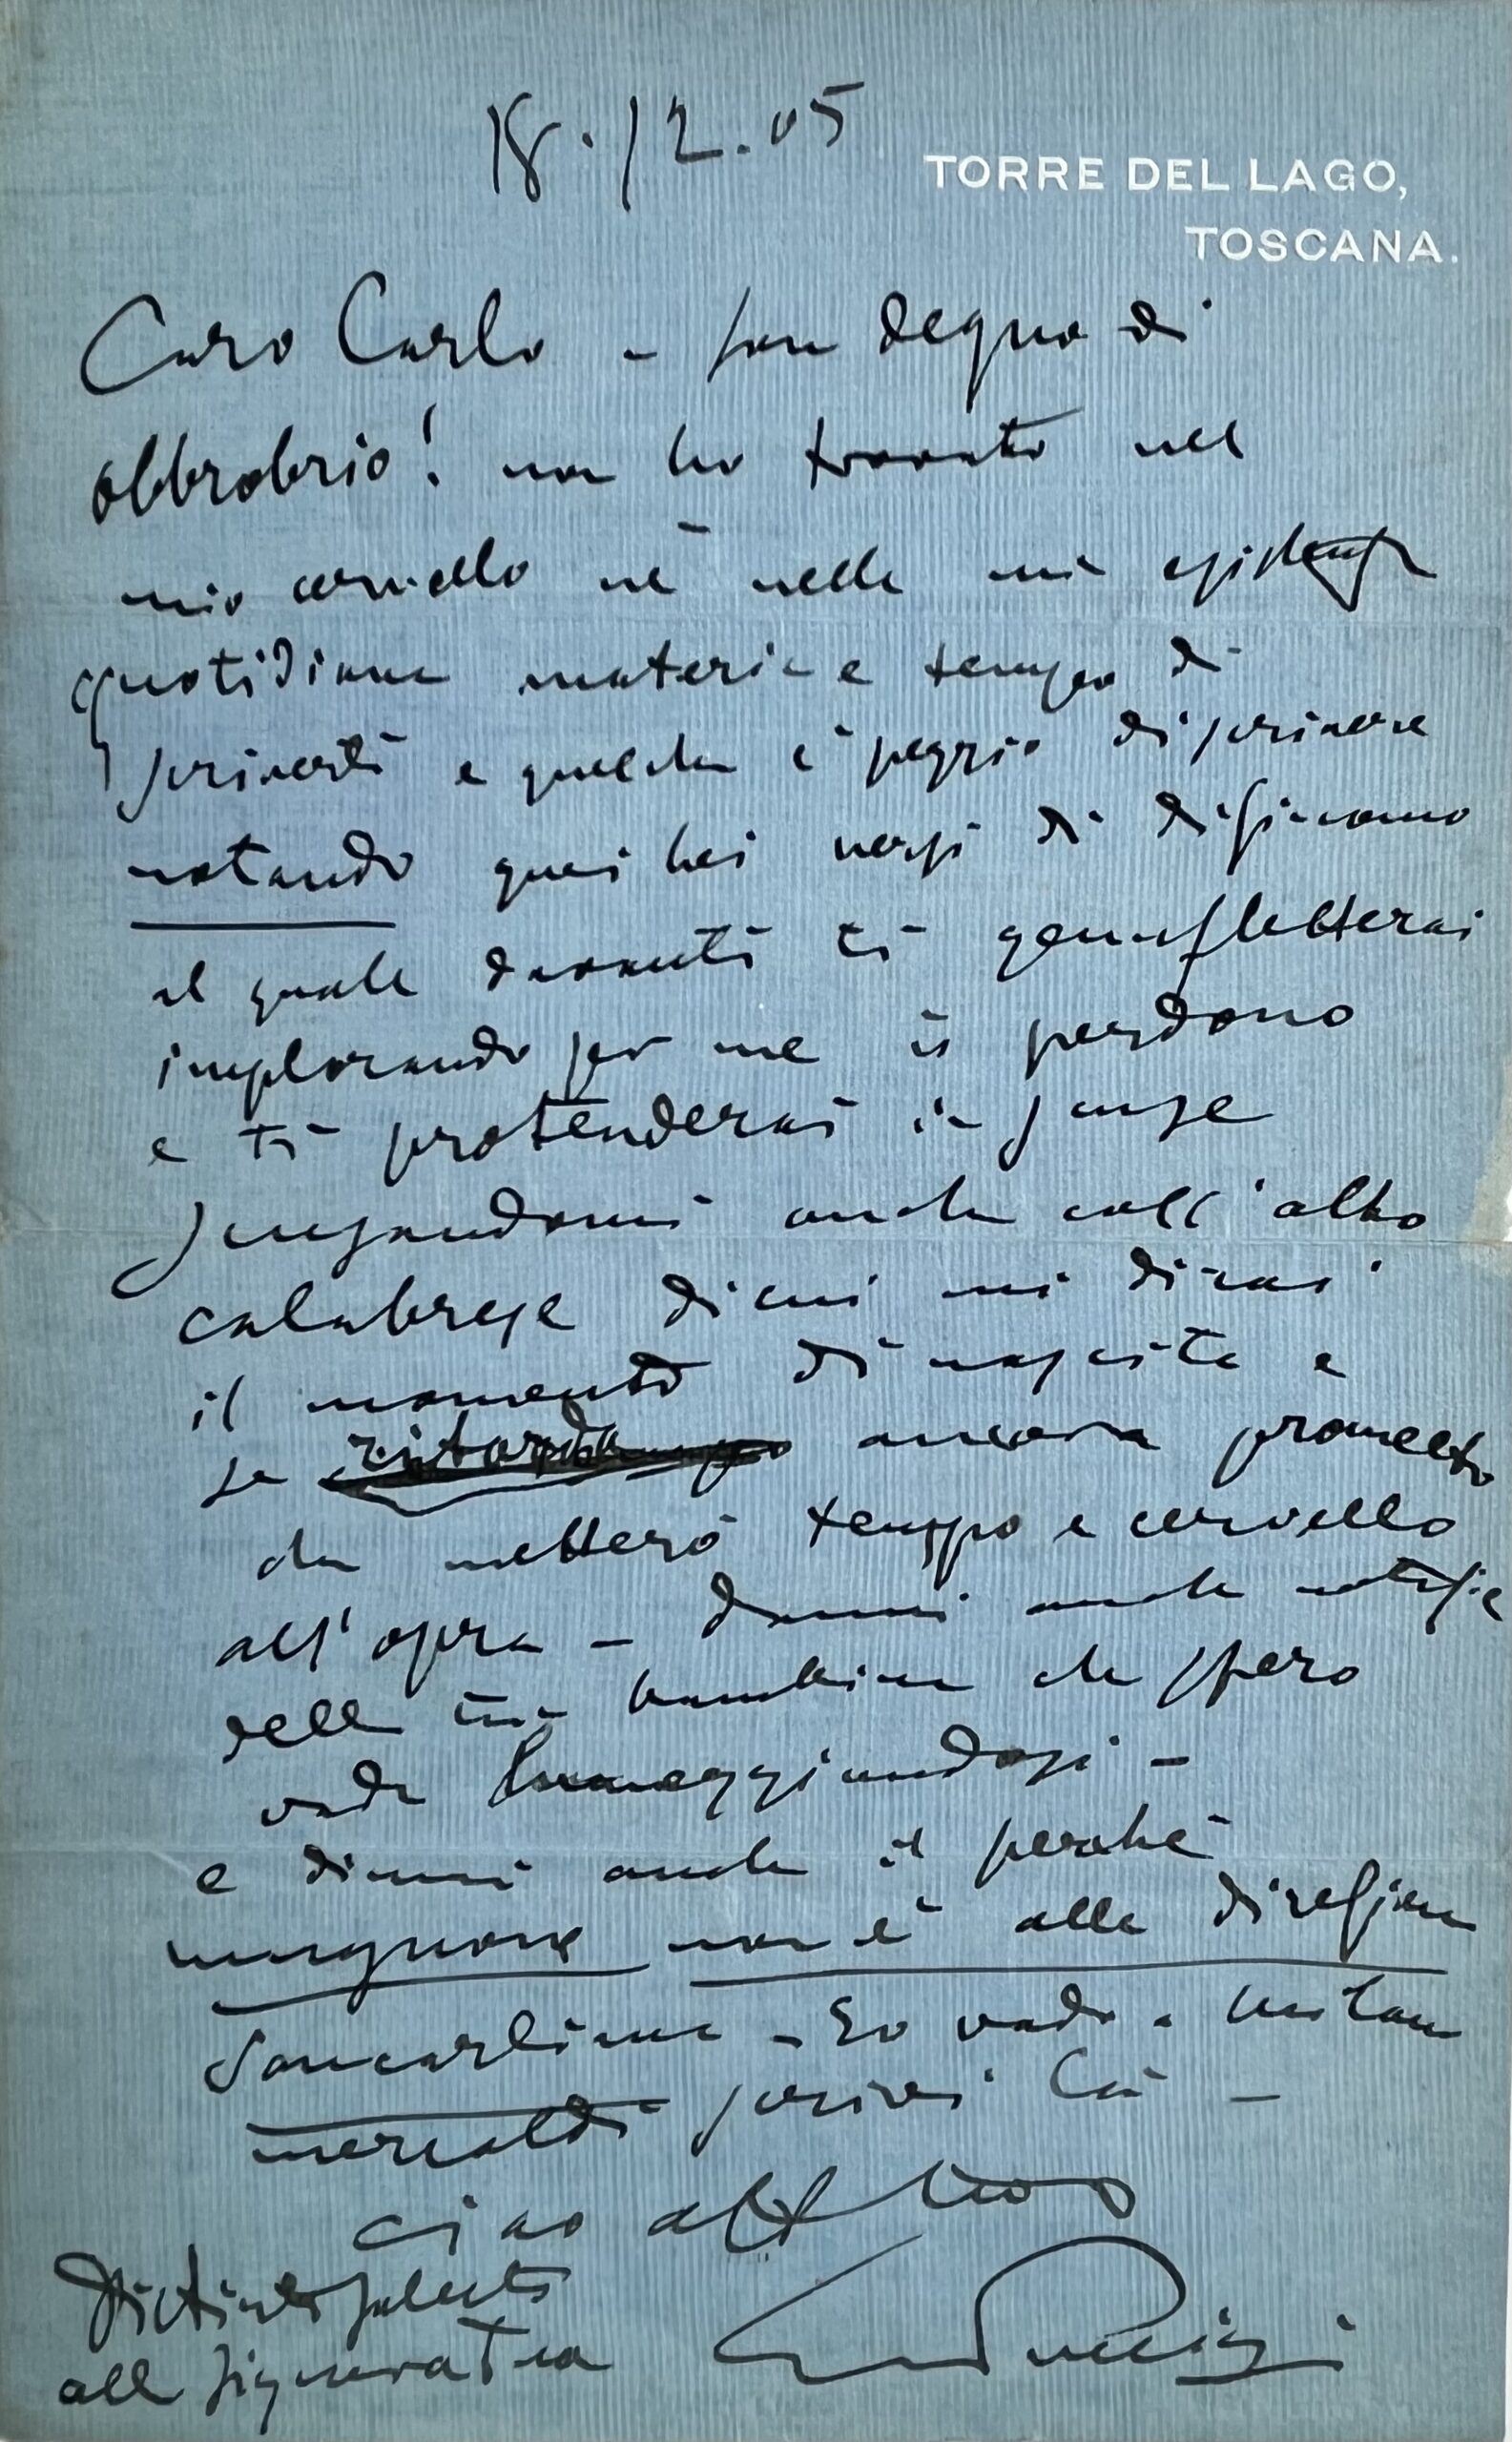 18.12.05
TORRE DEL LAGO,
TOSCANA.
Caro Carlo - son degno di
obbrobrio! non ho trovato nel
mio cervello nè nella mia esistenza
quotidiana materia e tempo di
scriverti e quel che è peggio di scrivere
notando quei bei versi di di Giacomo
al quale davanti ti genufletterai
implorando per me il perdono
e ti protenderai in scuse
scusandomi anche coll'altro
calabrese di cui mi dirai
il momento di nascita e
se ritarda ancora prometto
che metterò tempo e cervello
all'opra - dammi anche notizie
della tua bambina che spero
vada
e dimmi anche il perchè
mugnone non è alla direzione
Sancarliana - Io vado a Milano
mercoldì scrivi là -
ciao aff tuo
GPuccini
Distinti saluti
alla signora tua